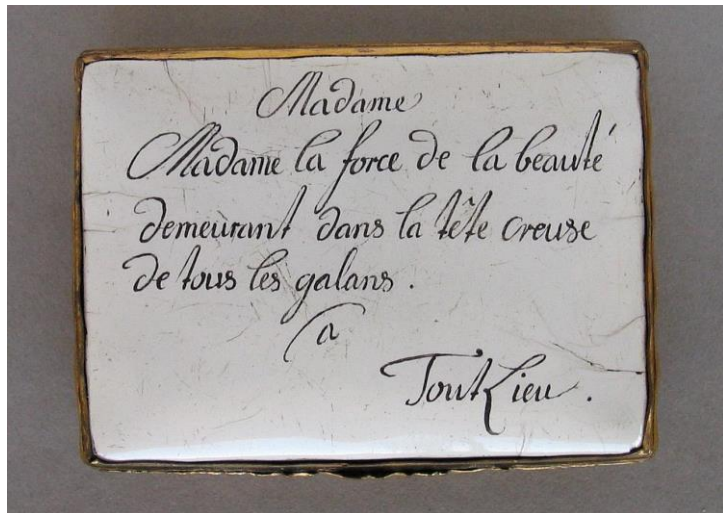 Madame
Madame la force de la beauté
demeurant dans la tête creuse
de tous les galans.
a
Tout Lieu.